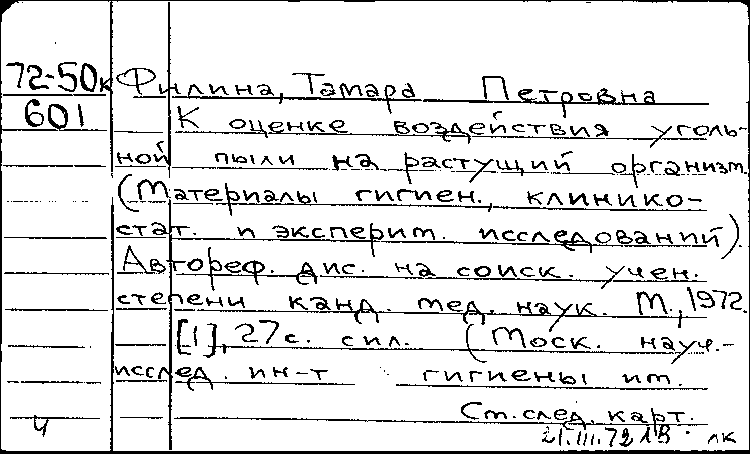 72-50к Филина, Тамара Петровна
601 К оценке воздействия уголь-
ной пыли на растущий организм.
(Материалы гигиен., клинико-
стат. и эксперим. исследований).
Автореф. дис. на соиск. учен.
степени канд. мед. наук. М., 1972.
[1], 27 с. с ил. (Моск. науч.-
исслед. ин-т гигиены им.
Ст. след. карт.
ч 21.III.72 лк